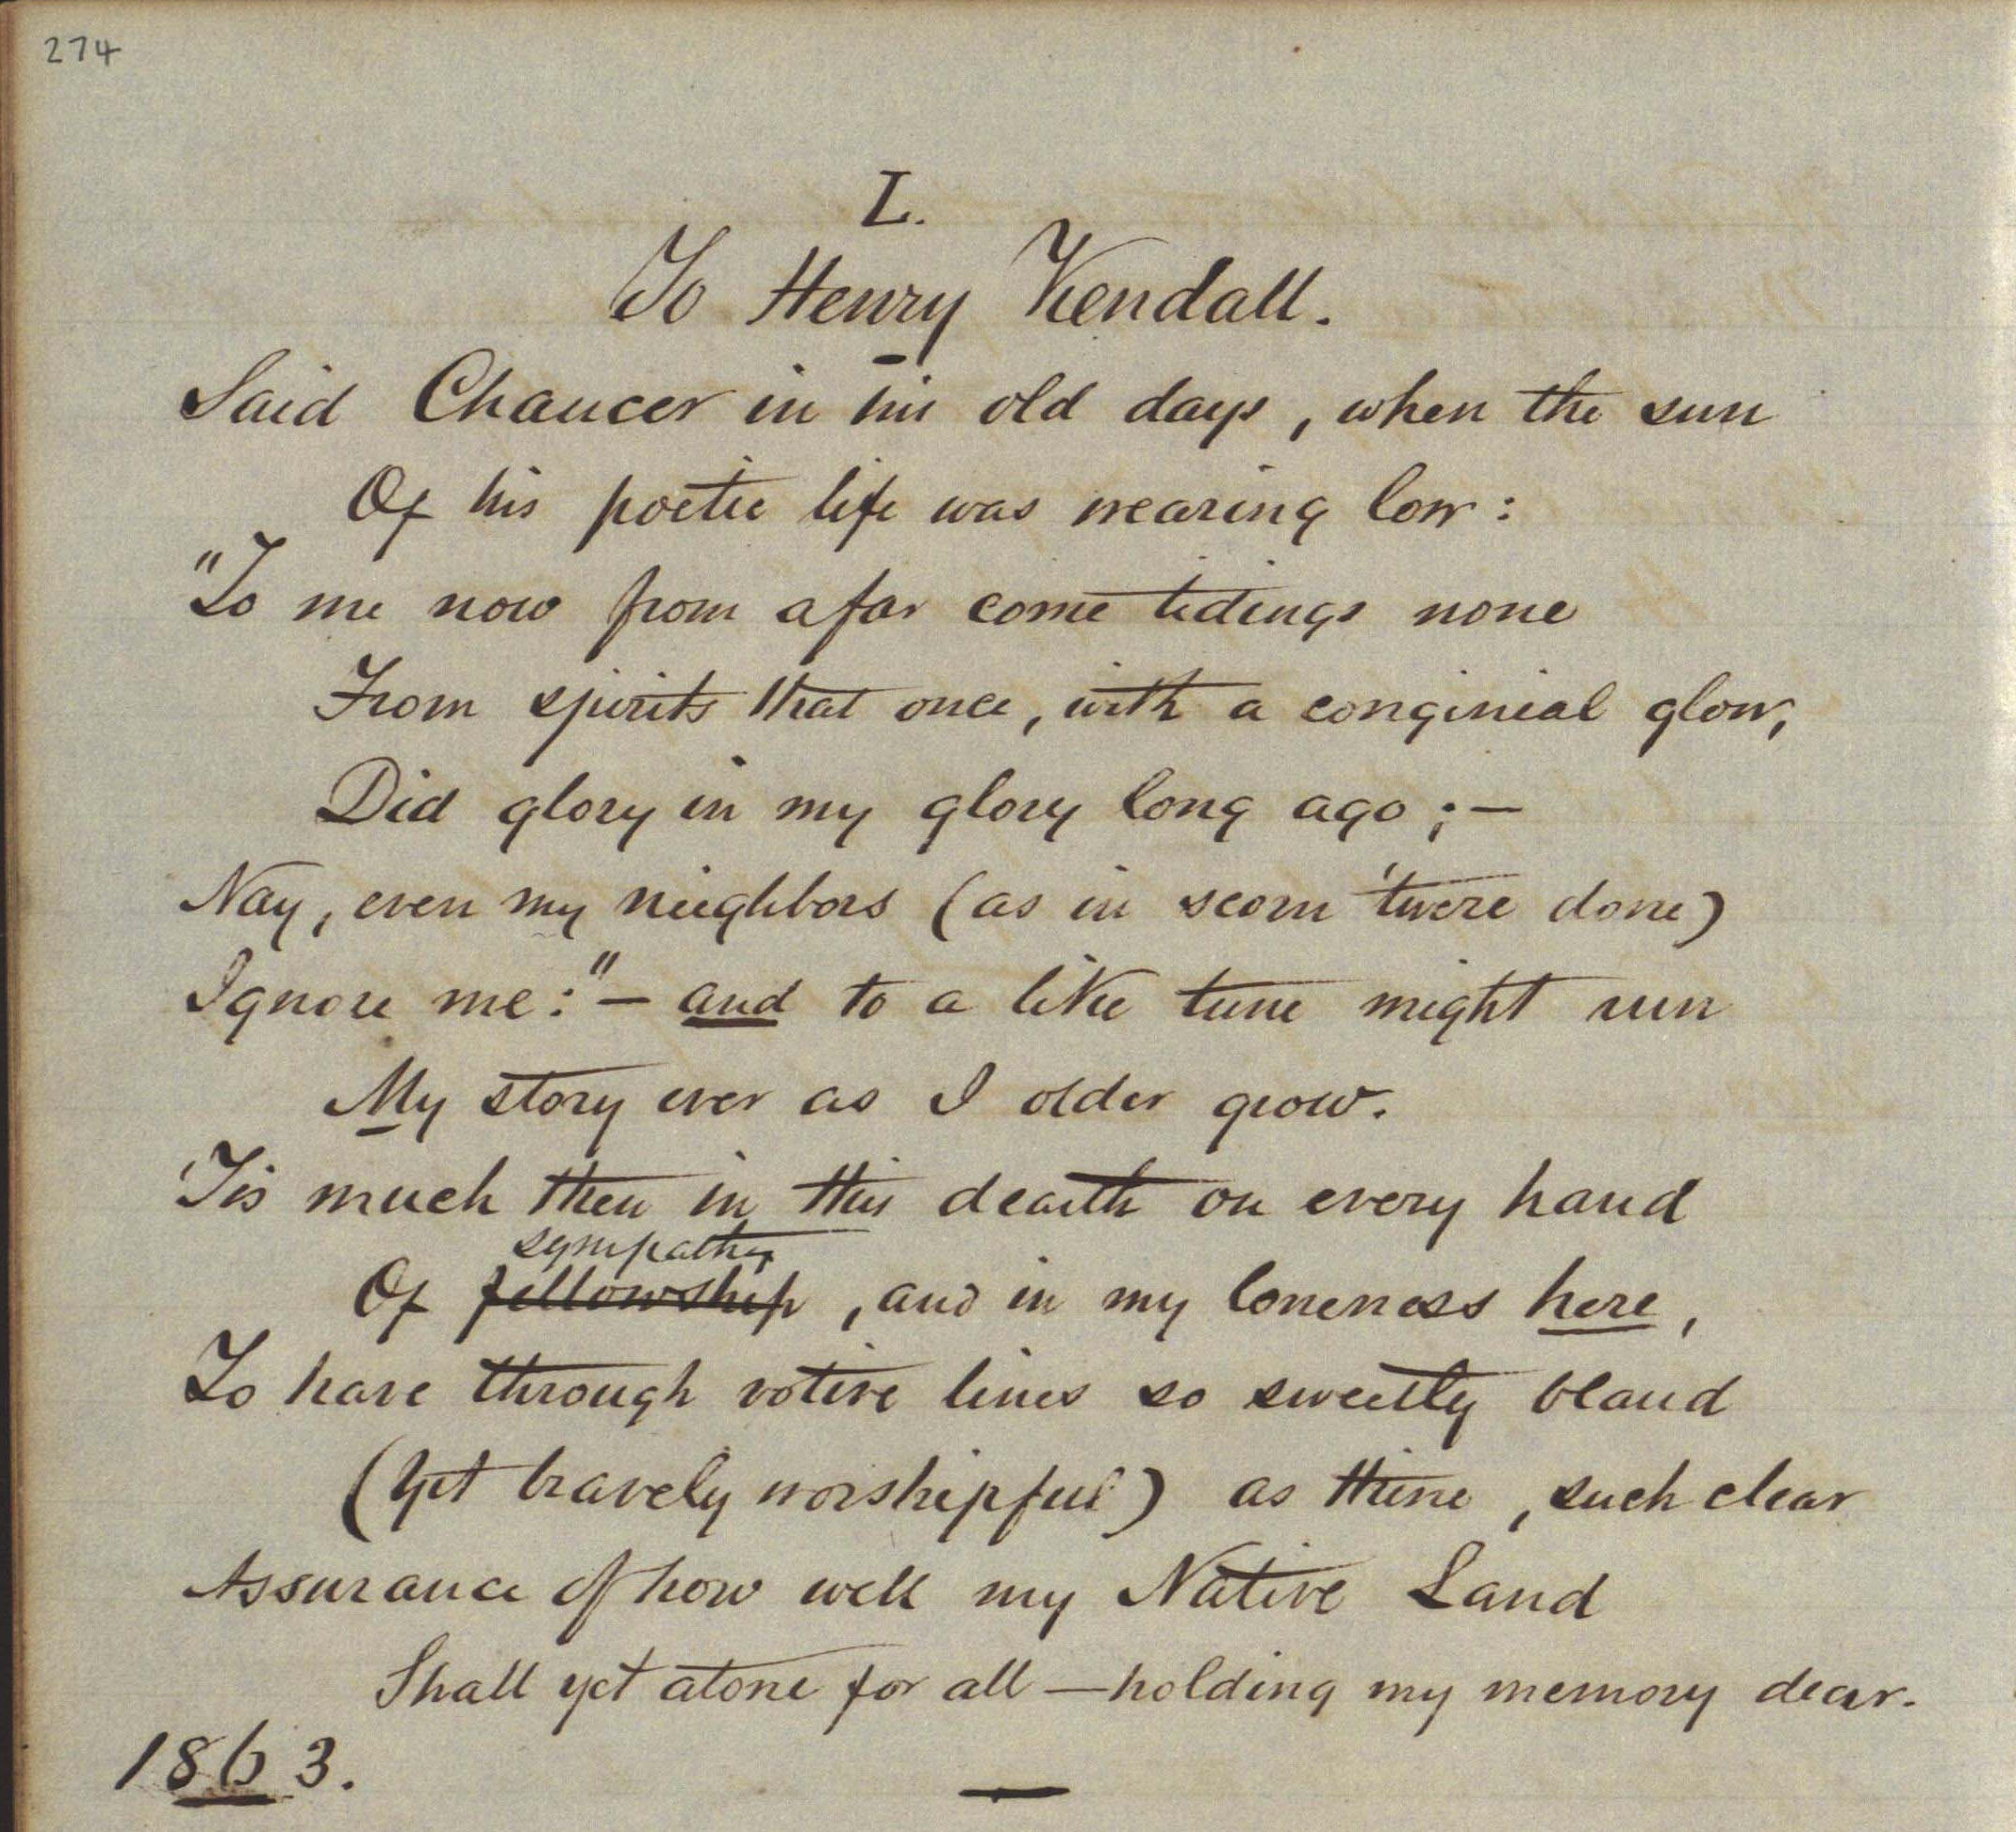 274
L.
To Henry Kendall.
Said Chaucer in his old days, when the sun
Of his poetic life was wearing low:
"To me now from afar come tidings none
From spirits that once, with a conginial glow,
Did glory in my glory long ago;—
Nay, even my neighbors (as in scorn 'twere done)
Ignore me:"— and to a like tune might run
My story ever as I older grow.
'Tis much then in this dearth on every hand
sympathy
Of fellowship, and in my loneness here,
To have through votive lines so sweetly bland
(Yet bravely worshipful) as thine, such clear
Assurance of how well my Native Land
Shall yet atone for all—holding my memory dear.
1863.